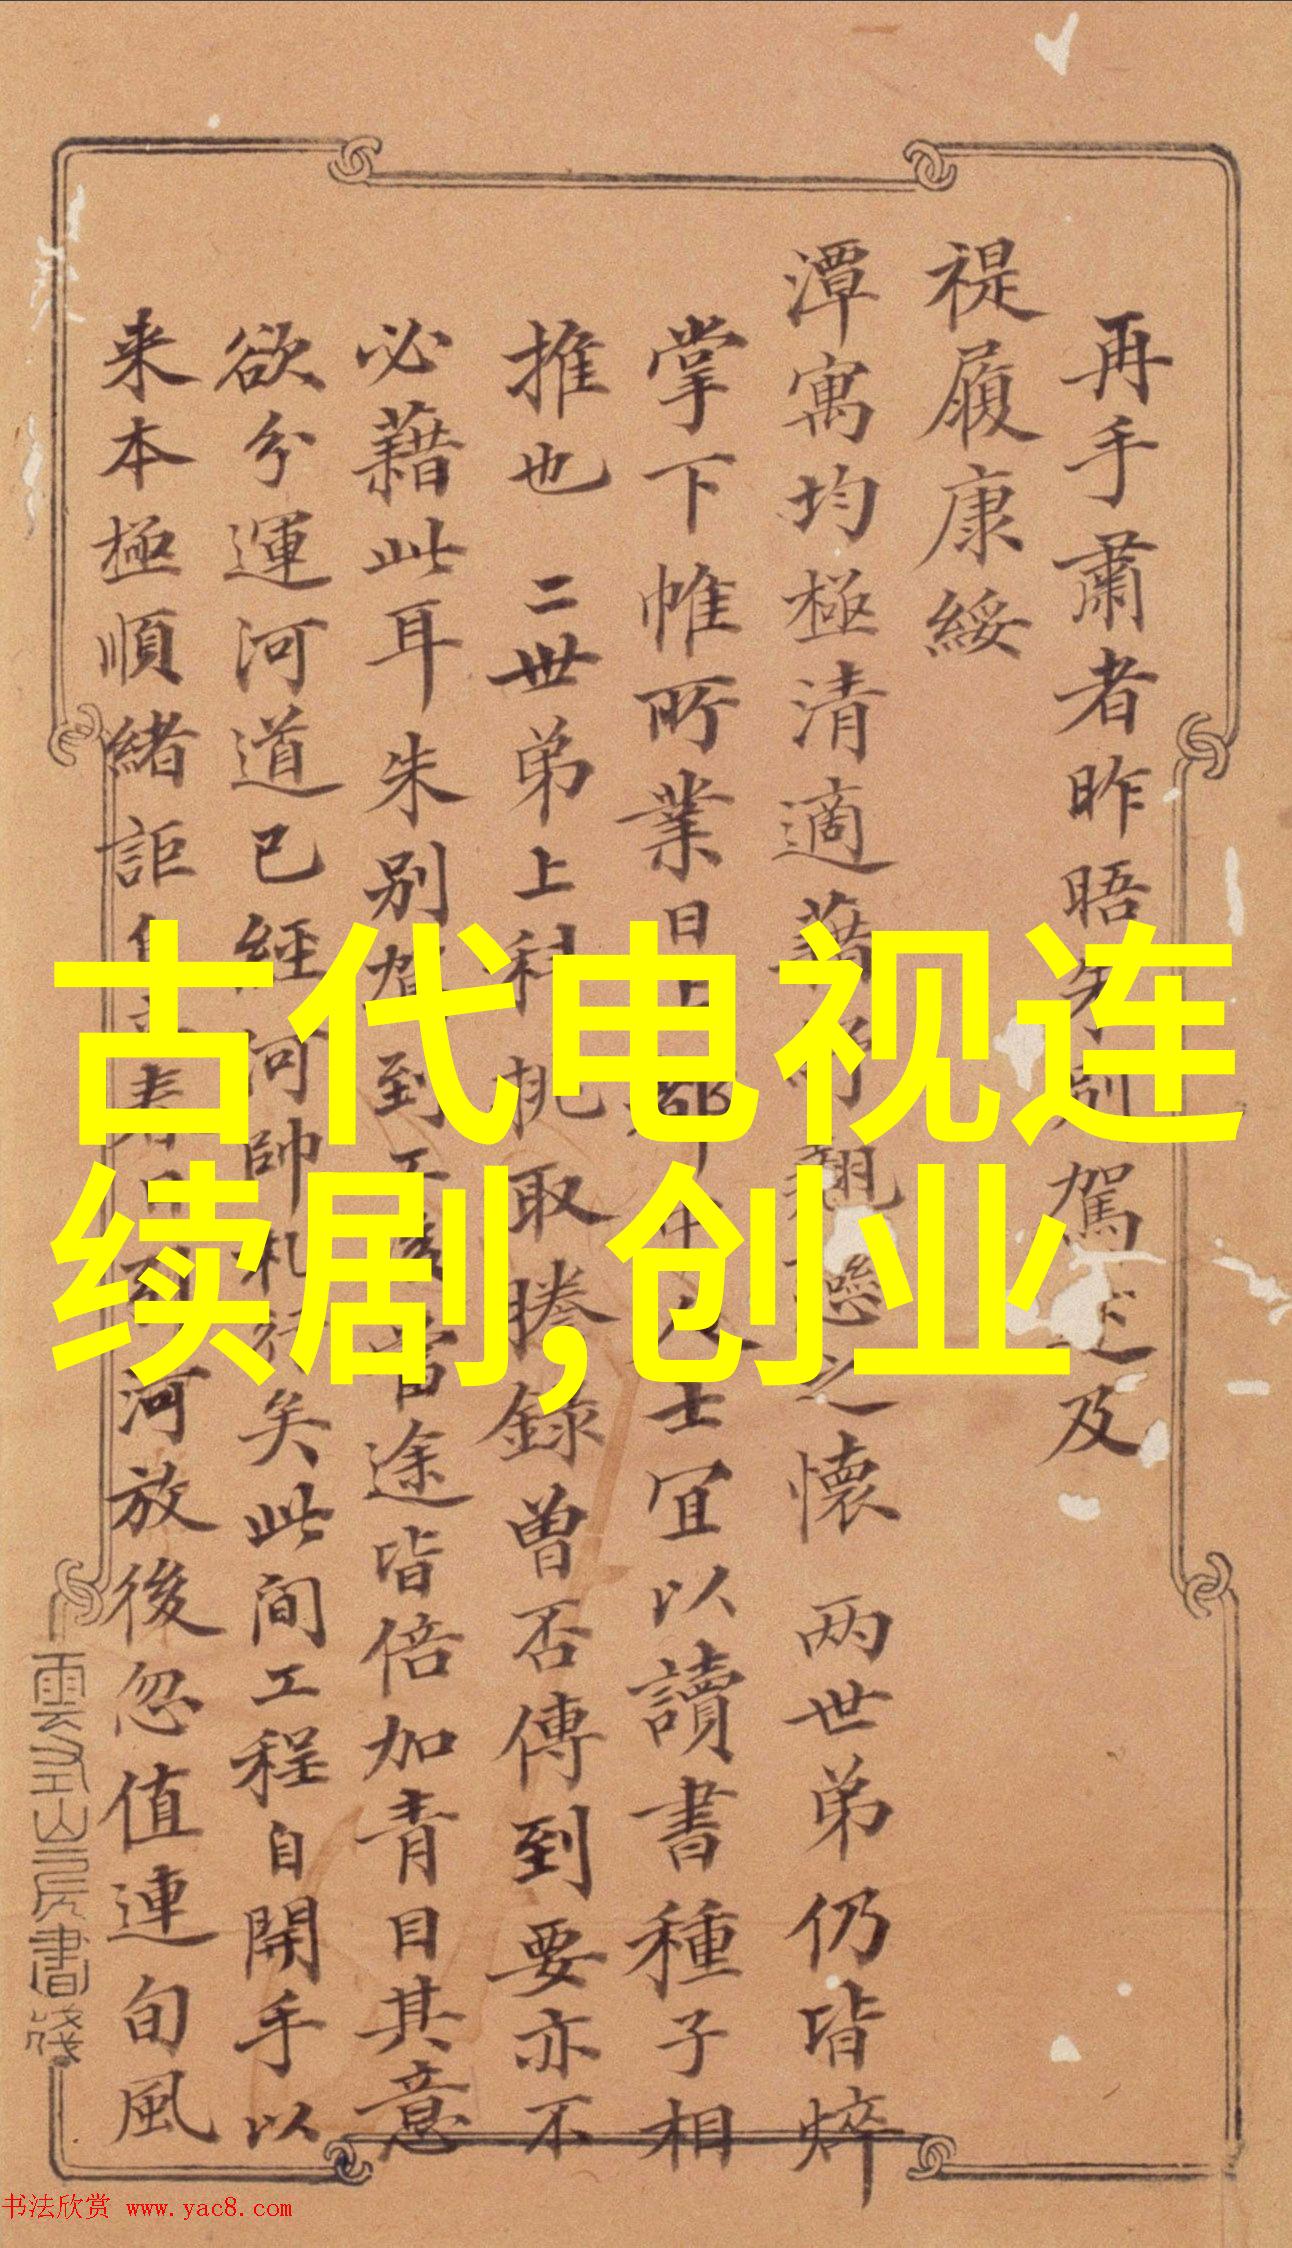 再手肅者昨晤朱別駕述及
禔履康綏
潭寓均極清適藉 翹 之懷 两世弟仍皆焠
掌下帷所業日 士宜以讀書種子相
推也 二世弟上科挑取謄錄曾否傳到要亦不
必藉此耳朱別駕到工 當途皆倍加青目其意
欲分運河道已經河帥札行矣此间工程自開手以
来本極順緒詎 河放後忽值連旬風
雲 山房書箋
古代电视连
续剧,创业
书法欣赏 www.yac8.com